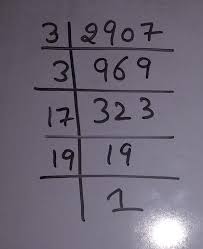 3 | 2907
3 | 969
17 | 323
19 | 19
| 1